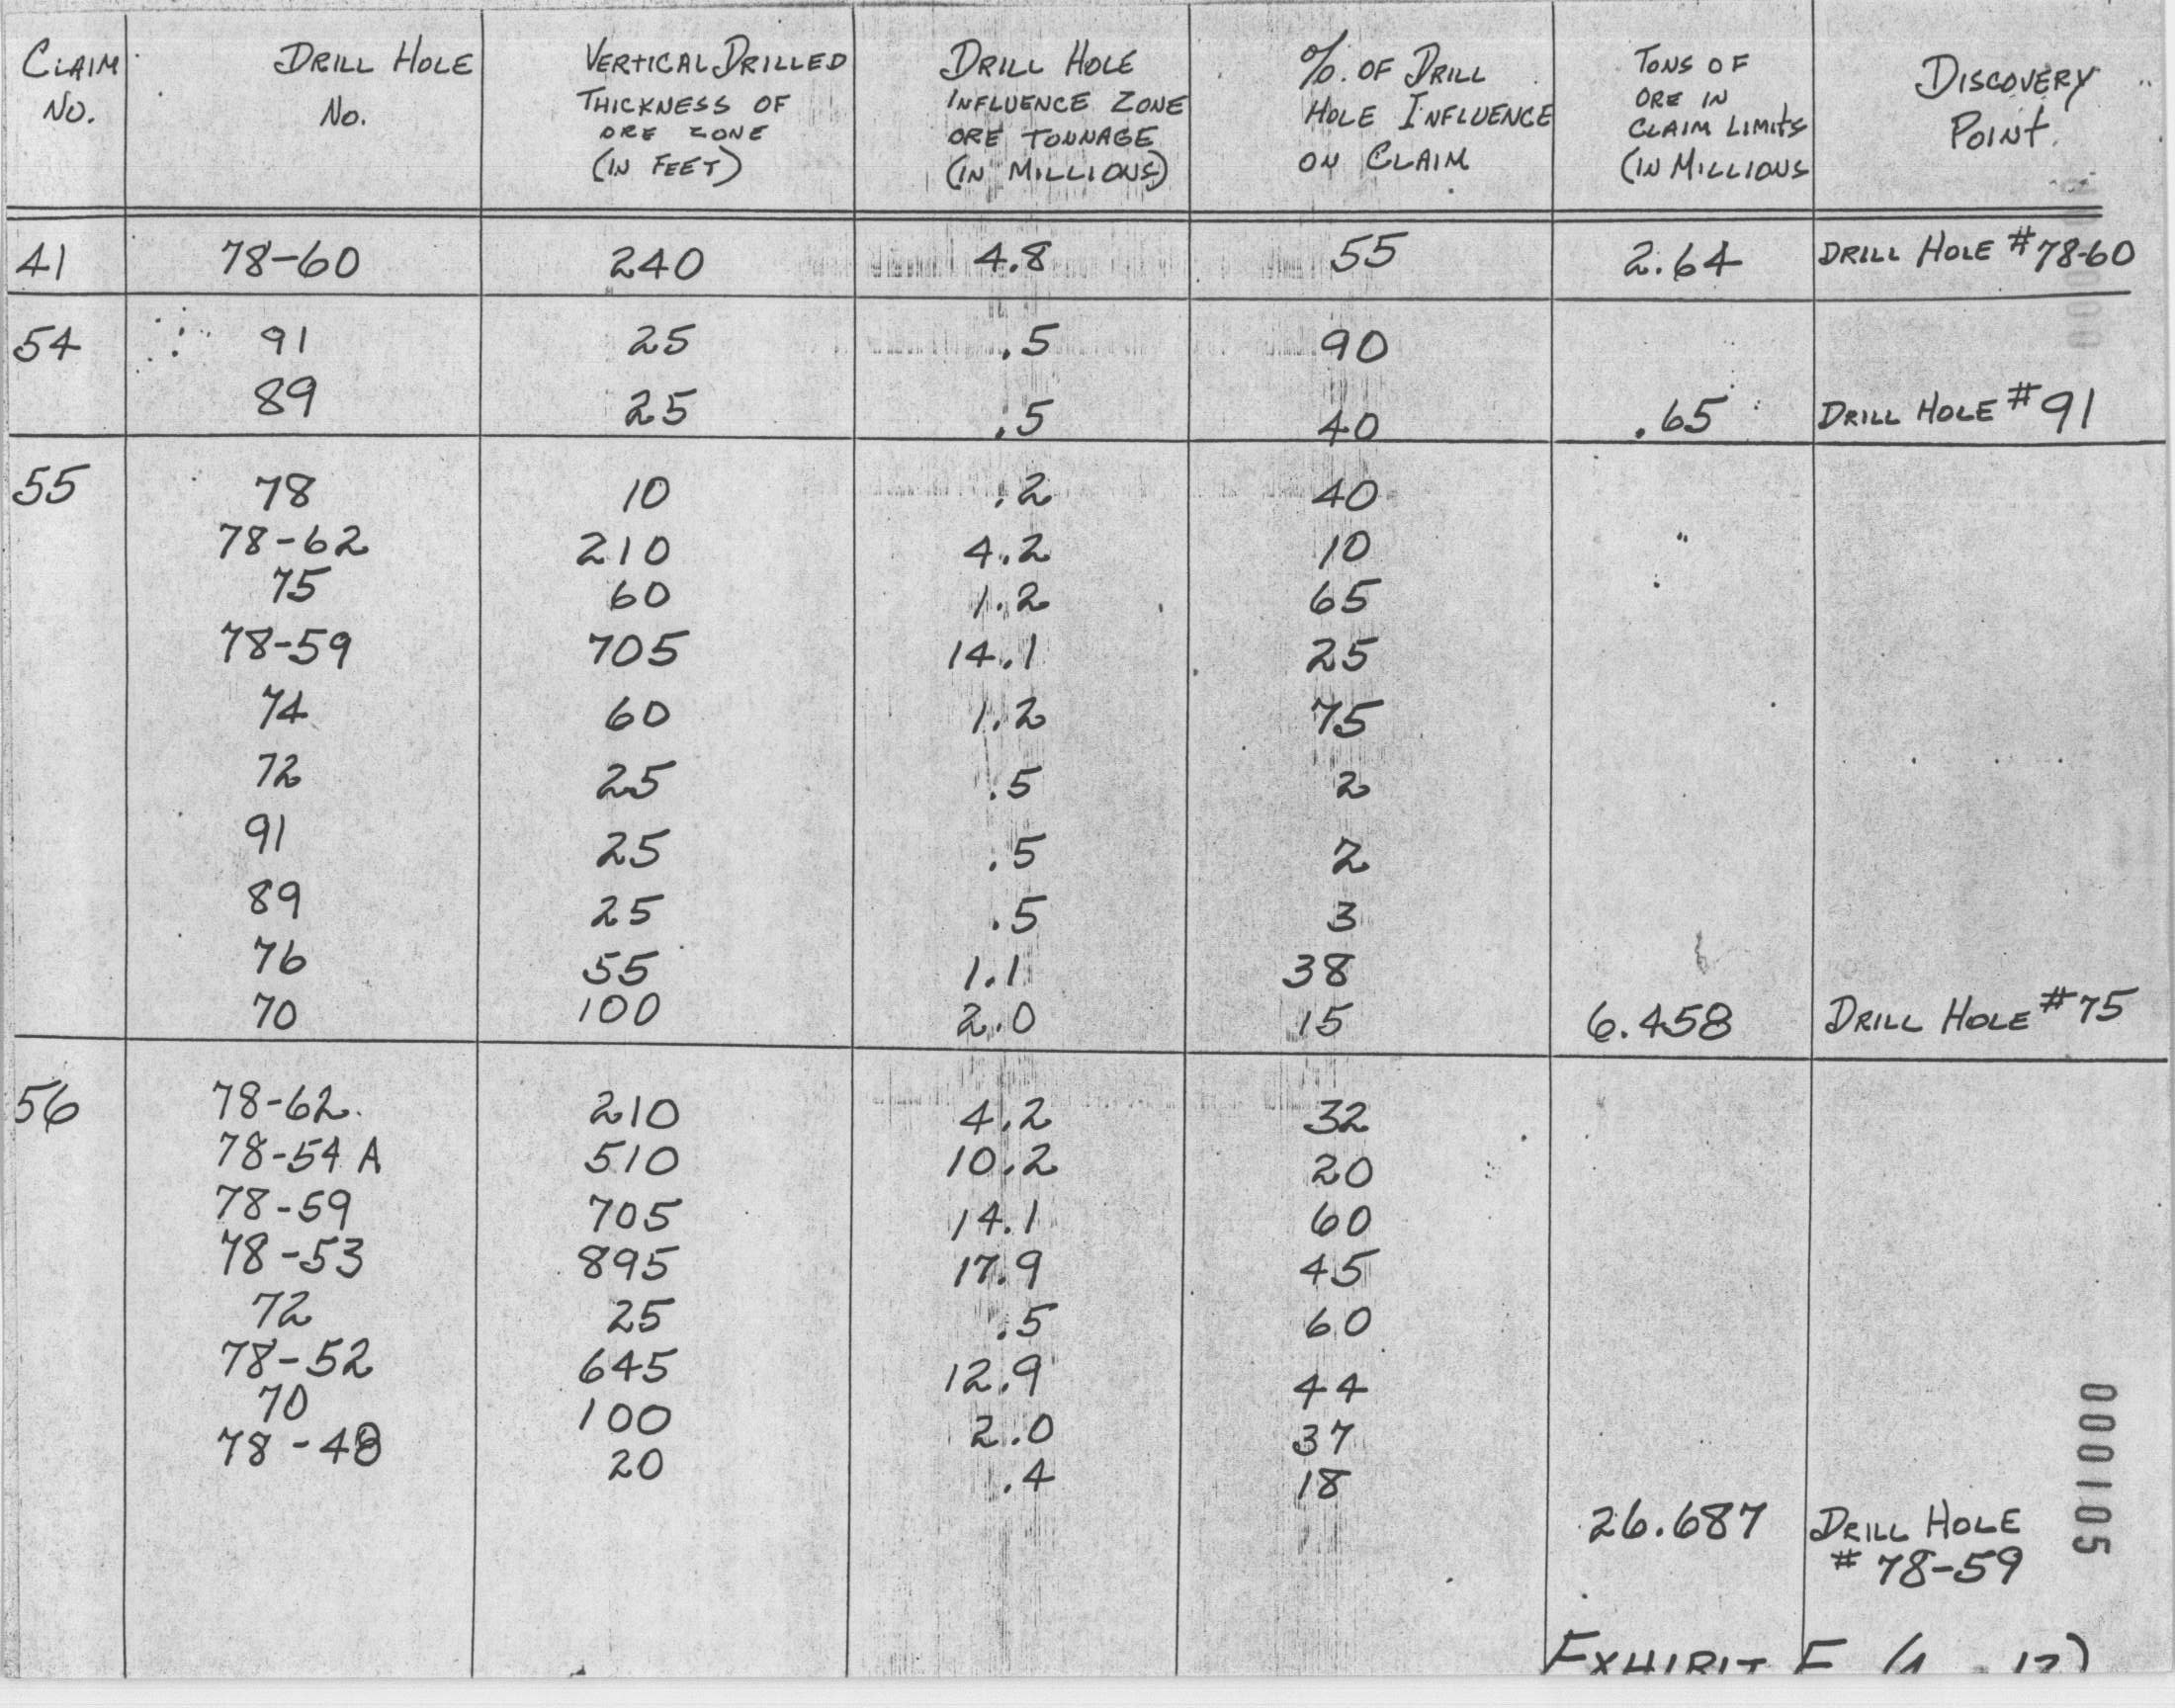 CLAIM NO. DRILL HOLE NO. VERTICAL DRILLED THICKNESS OF ORE ZONE (IN FEET) DRILL HOLE INFLUENCE ZONE ORE TONNAGE (IN MILLIONS) %. OF DRILL HOLE INFLUENCE ON CLAIM TONS OF ORE IN CLAIM LIMITS (IN MILLIONS DISCOVERY POINT.
41 78-60 240 4.8 55 2.64 DRILL HOLE #78-60
54 91 25 .5 90
89 25 .5 40 .65 DRILL HOLE #91
55 78 10 .2 40
78-62 210 4.2 10
75 60 1.2 65
78-59 705 14.1 25
74 60 1.2 75
72 25 .5 2
91 25 .5 2
89 25 .5 3
76 55 1.1 38
70 100 2.0 15 6.458 DRILL HOLE #75
56 78-62 210 4.2 32
78-54 A 510 10.2 20
78-59 705 14.1 60
78-53 895 17.9 45
72 25 .5 60
78-52 645 12.9 44
70 100 2.0 37
78-48 20 .4 18
26.687 DRILL HOLE
# 78-59
000105
EXHIBIT